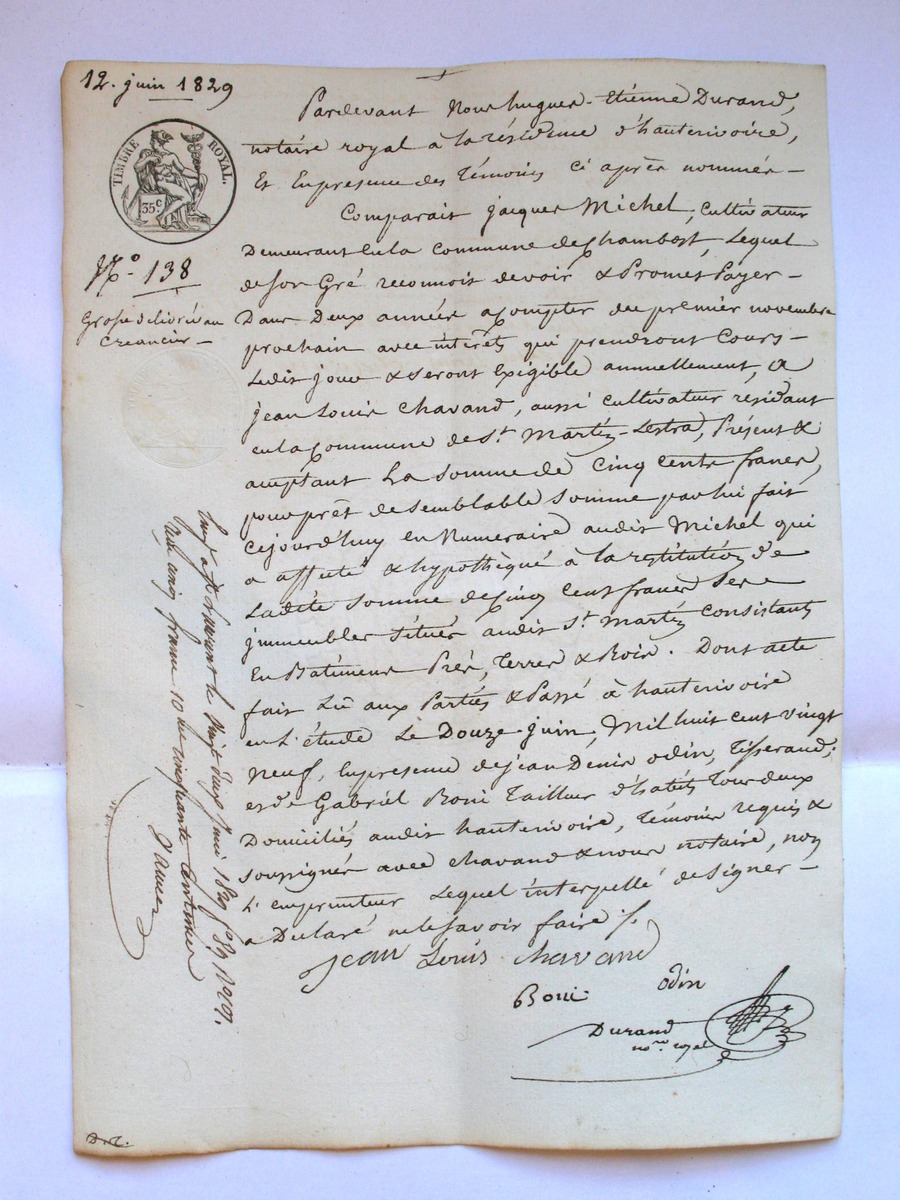 12. juin 1829
TIMBRE ROYAL.
35 c
N.º 138
Grosse delivré au
Creancier –
Pardevant Nous hugues-Etienne Durand,
notaire royal à la résidence d'hauterivoire,
Et En presence des témoins ci après nommés –
Comparait jacques Michel, cultivateur
Demeurant En la commune de Chambost, Lequel
de son Gré reconnoit devoir & Promet Payer –
Dans Deux années a Compter du premier novembre
prochain avec intérêts qui prendront Cours –
Ledit jour & seront Exigible annuellement, a
jean Louis Chavand, aussi cultivateur residant
en la Commune de St. Martin-Lestra, Présent &
acceptant La somme de Cinq cents francs,
pour prêt de semblable somme par lui fait
Cejourd'huy en Numeraire audit Michel qui
a affecté & hypothèqué à la restitution de
Ladite somme de Cinq Cent francs Ses
jmmeubles situés audit St. Martin Consistants
En Batimens Prés, Terres & Bois. Dont acte
fait Lu aux Parties & Passé à hauterivoire
en L'étude Le Douze juin, Mil huit cent vingt
neuf, En presence de jean Denis odin, Tisserand,
et de Gabriel Boni Tailleur d'habits Tous deux
Domiciliés audit hauterivoire, Témoins requis &
soussignés avec chavand & nous notaire, non
L'emprunteur Lequel interpellé de Signer –
a Declaré ne le savoir faire ./.
Jean Louis chavand
Boni odin
Durand
nore. royal
le Vingt deux juin 1829
cinq francs cinquante Centimes